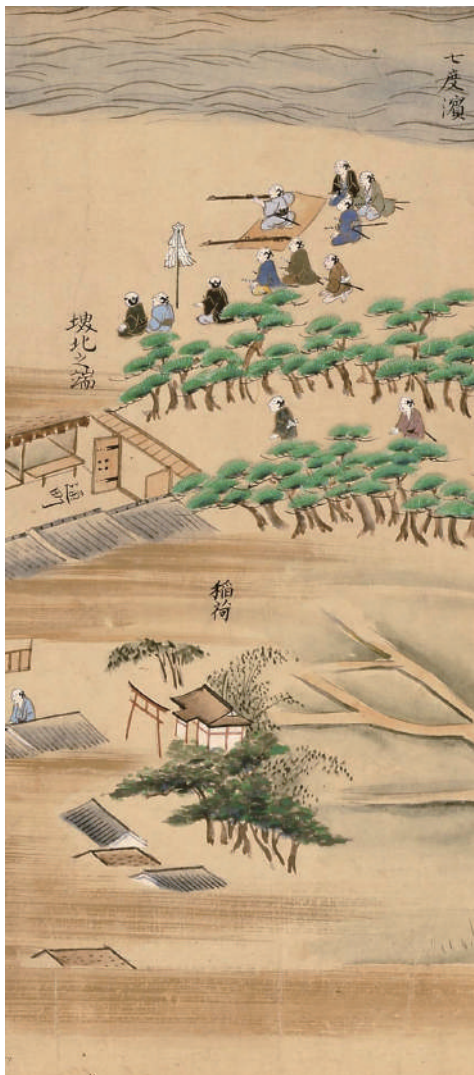 七度濱
堺北之端
稲荷